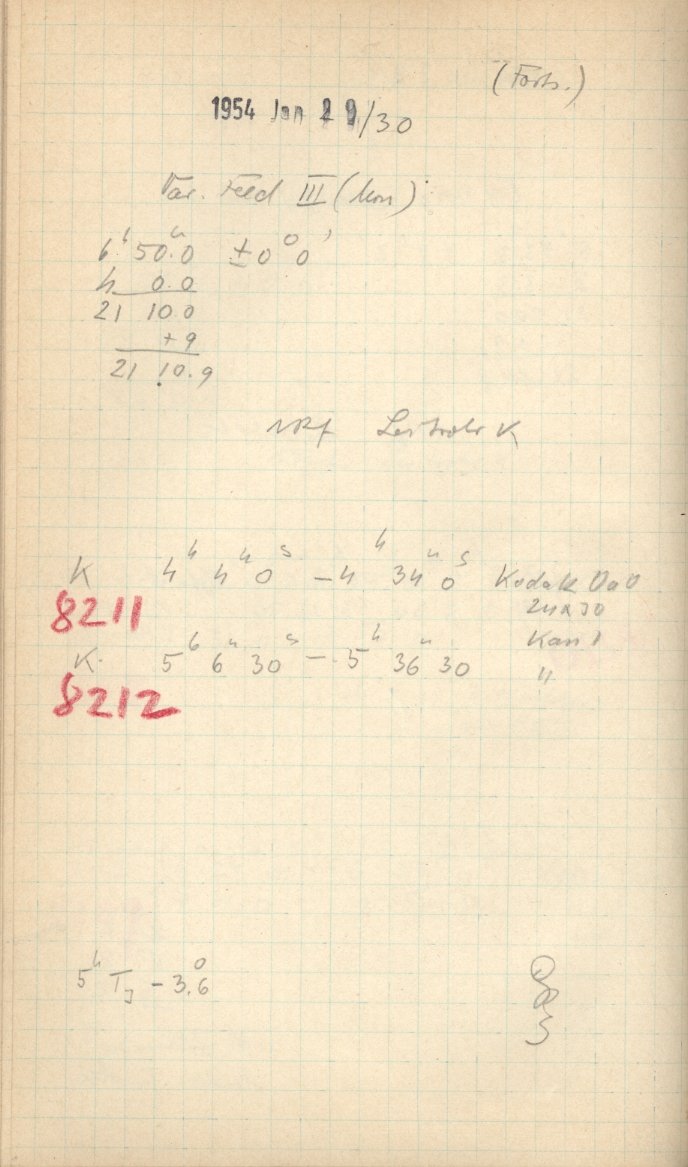 (Forts.)
1954 Jan 29/30
Var. Feld III (kon)
6ʰ 50ᵐ.0 ±0° 0'
4 0.0
21 10.0
+9
21 10.9
Leitrohr K
K 4ʰ 4ᵐ 0ˢ – 4ʰ 34ᵐ 0ˢ Kodak OaO
24x30
8211
Kass 1
K. 5ʰ 6ᵐ 30ˢ – 5ʰ 36ᵐ 30 "
8212
5ʰ TJ – 3.6°